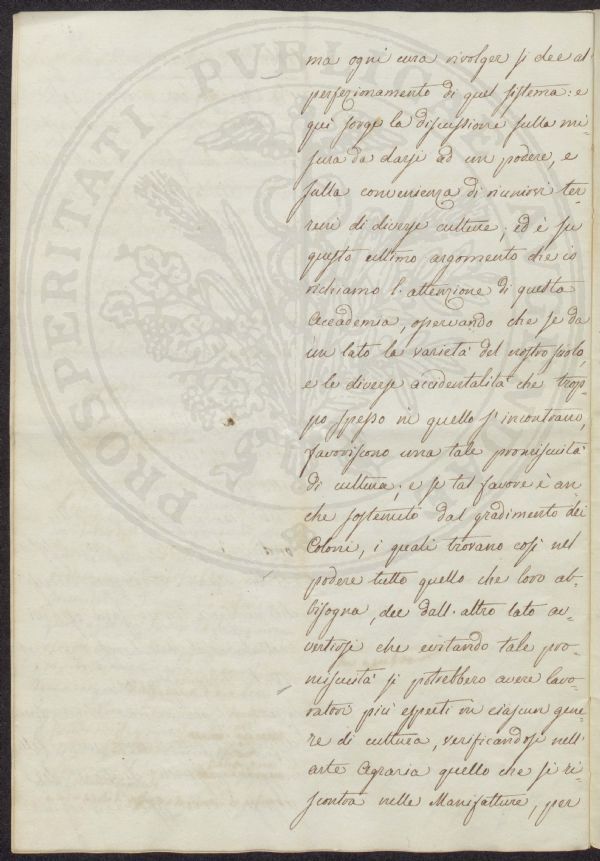 ma ogni cura rivolger si dee al
perfezionamento di quel sistema: e
quì sorge la discussione sulla mi=
sura da darsi ad un podere, e
sulla convenienza di riunirvi ter=
reni di diverse culture; ed è su
questo ultimo argomento che io
richiamo l'attenzione di questa
Accademia, osservando che se da
un lato la varietà del nostro suolo,
e le diverse accidentalità che trop=
po spesso in quello s'incontrano,
favoriscono una tale promiscuità
di cultura; e se tal favore è an
che sostenuto dal gradimento dei
Coloni, i quali trovano così nel
podere tutto quello che loro ab=
bisogna, dee dall'altro lato av=
vertirsi che evitando tale pro=
miscuità si potrebbero avere lavo=
ratori più esperti in ciascun gene=
re di cultura, verificandosi nell'
arte Agraria quello che si ri=
scontra nelle Manifatture, per
PROSPERITATI PVBLICAE